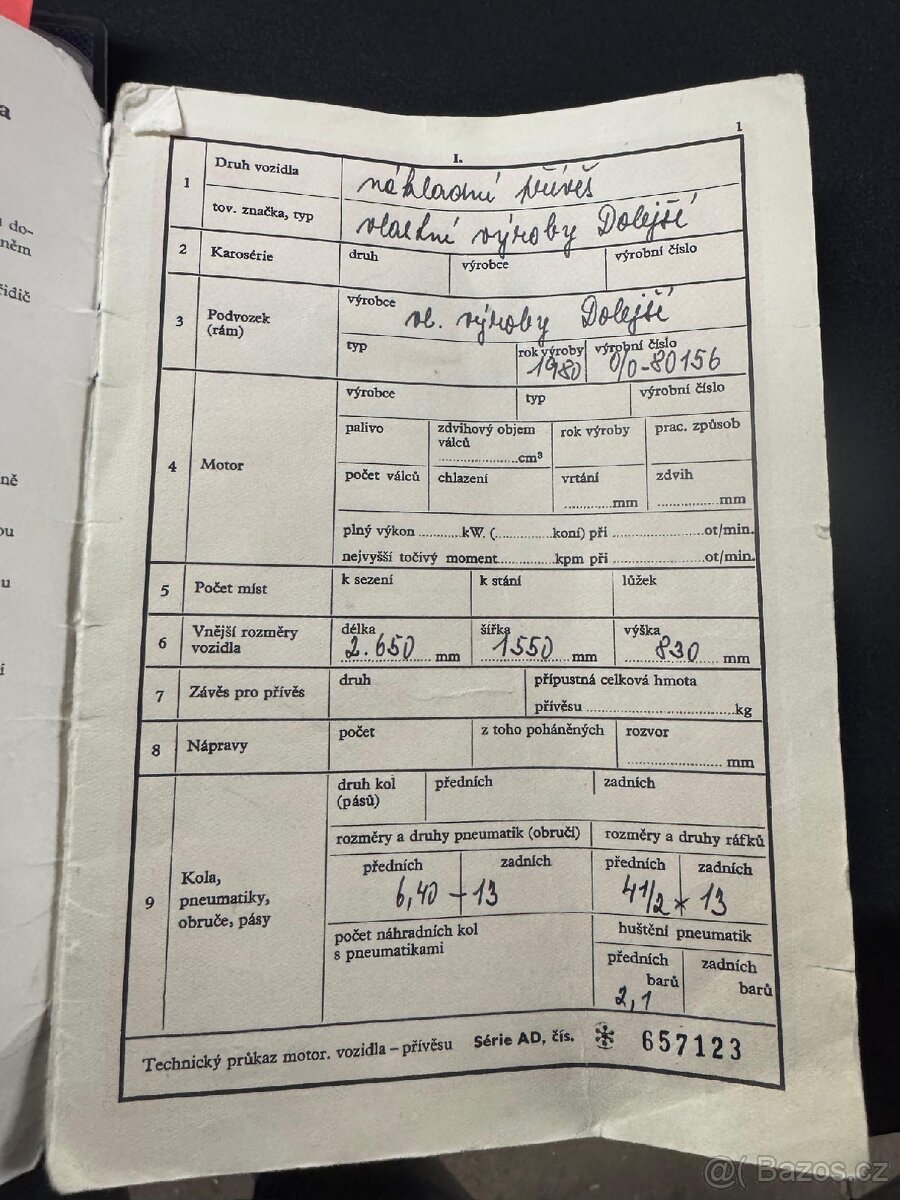 a
do-
ném
řidič
ně
ou
u
í
1
I.
1 Druh vozidla nákladní přívěs
tov. značka, typ vlastní výroby Dolejší
2 Karosérie druh výrobce výrobní číslo
3 Podvozek (rám) výrobce vl. výroby Dolejší
typ rok výroby 1980 výrobní číslo 0/0-80156
4 Motor výrobce typ výrobní číslo
palivo zdvihový objem válců ........cm³ rok výroby prac. způsob
počet válců chlazení vrtání ........mm zdvih ........mm
plný výkon ........kW. (........koní) při ........ot/min.
nejvyšší točivý moment........kpm při ........ot/min.
5 Počet míst k sezení k stání lůžek
6 Vnější rozměry vozidla délka 2.650 mm šířka 1550 mm výška 830 mm
7 Závěs pro přívěs druh přípustná celková hmota
přívěsu ........kg
8 Nápravy počet z toho poháněných rozvor ........ mm
9 Kola, pneumatiky, obruče, pásy druh kol (pásů) předních zadních
rozměry a druhy pneumatik (obručí) rozměry a druhy ráfků
předních zadních předních zadních
6,40 - 13 4 1/2 × 13
počet náhradních kol s pneumatikami huštění pneumatik
předních barů zadních barů
2,1
Technický průkaz motor. vozidla – přívěsu Série AD, čís. 657123
@( Bazos.cz